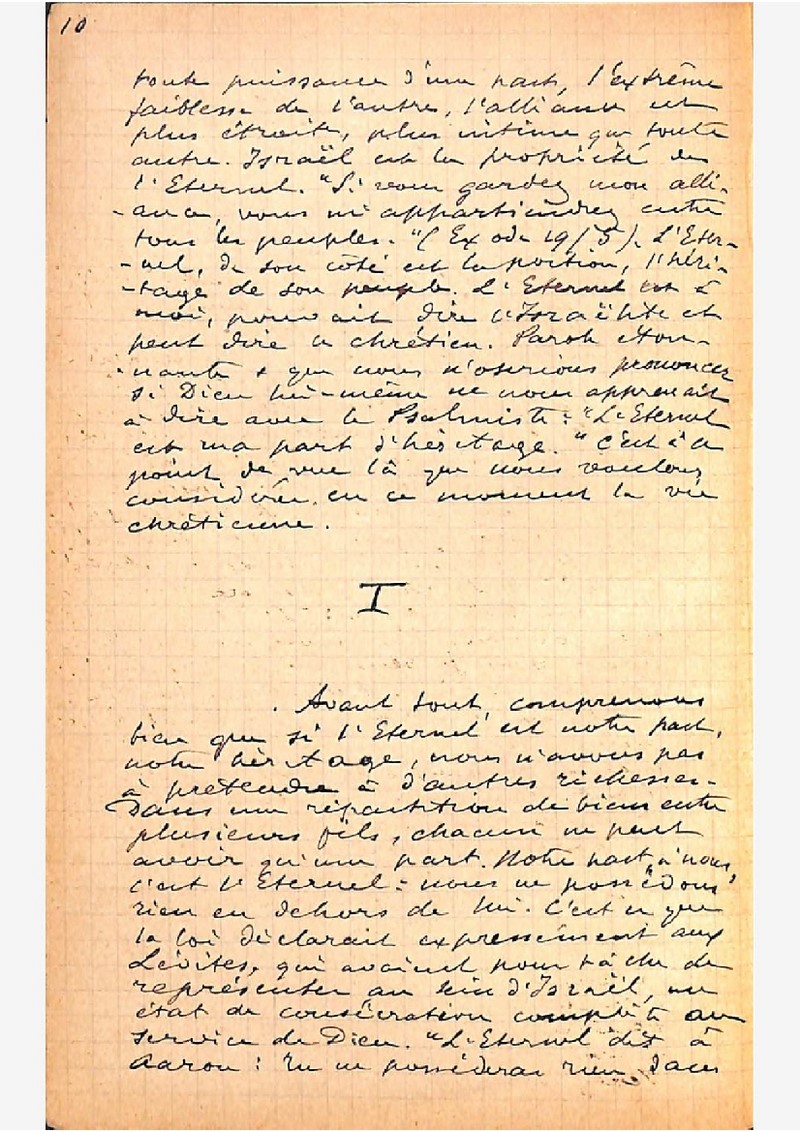 10
toute puissance d'une part, l'extrême
faiblesse de l'autre, l'alliance est
plus étroite, plus intime que toute
autre. Israël est la propriété de
l'Eternel. "Si vous gardez mon alli-
-ance, vous m'appartiendrez entre
tous les peuples." (Exode 19/5). L'Eter-
-nel, de son côté est la portion, l'héri-
-tage de son peuple. L'Eternel est à
moi, pouvait dire l'Israëlite et
peut dire le chrétien. Parole éton-
-nante & que nous n'oserions prononcer
si Dieu lui-même ne nous apprenait
à dire avec le Psalmiste : "L'Eternel
est ma part d'héritage." C'est à ce
point de vue là que nous voulons
considérer en ce moment la vie
chrétienne.
I
Avant tout, comprenons
bien que si l'Eternel est notre part,
notre héritage, nous n'avons pas
à prétendre à d'autres richesses.
Dans une répartition de biens entre
plusieurs fils, chacun ne peut
avoir qu'une part. Notre part à nous,
c'est l'Eternel : nous ne possédons
rien en dehors de lui. C'est ce que
la loi déclarait expressément aux
Lévites, qui avaient pour tâche de
représenter au sein d'Israël, un
état de consécration complète au
service de Dieu. "L'Eternel dit à
Aaron : Tu ne posséderas rien dans